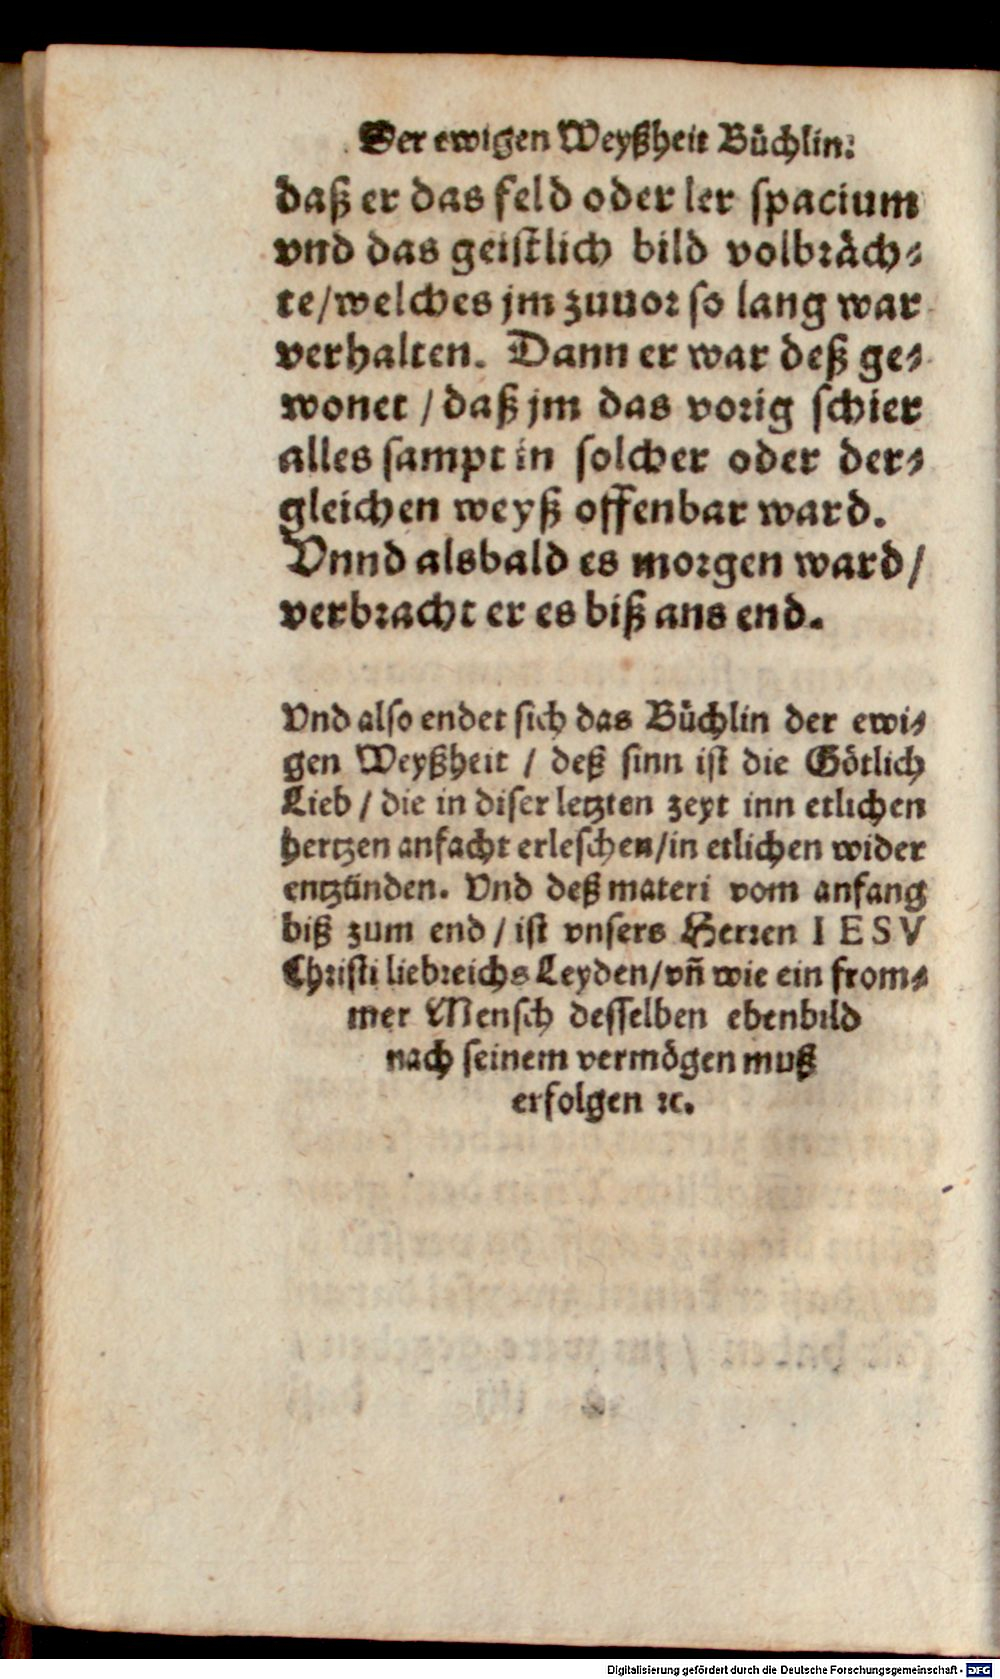 Der ewigen Weyßheit Bůchlin.
daß er das feld oder ler spacium
vnd das geistlich bild volbråch⸗
te/welches jm zuuor so lang war
verhalten. Dann er war deß ge⸗
wonet / daß jm das vorig schier
alles sampt in solcher oder der⸗
gleichen weyß offenbar ward.
Vnnd alsbald es morgen ward/
verbracht er es biß ans end.
Vnd also endet sich das Bůchlin der ewi⸗
gen Weyßheit / deß sinn ist die Gőtlich
Lieb / die in diser letzten zeyt inn etlichen
hertzen anfacht erleschen/in etlichen wider
entzünden. Vnd deß materi vom anfang
biß zum end / ist vnsers Herren IESV
Christi liebreichs Leyden/vn̄ wie ein from⸗
mer Mensch desselben ebenbild
nach seinem vermőgen muß
erfolgen ꝛc.
Digitalisierung gefördert durch die Deutsche Forschungsgemeinschaft - DFG